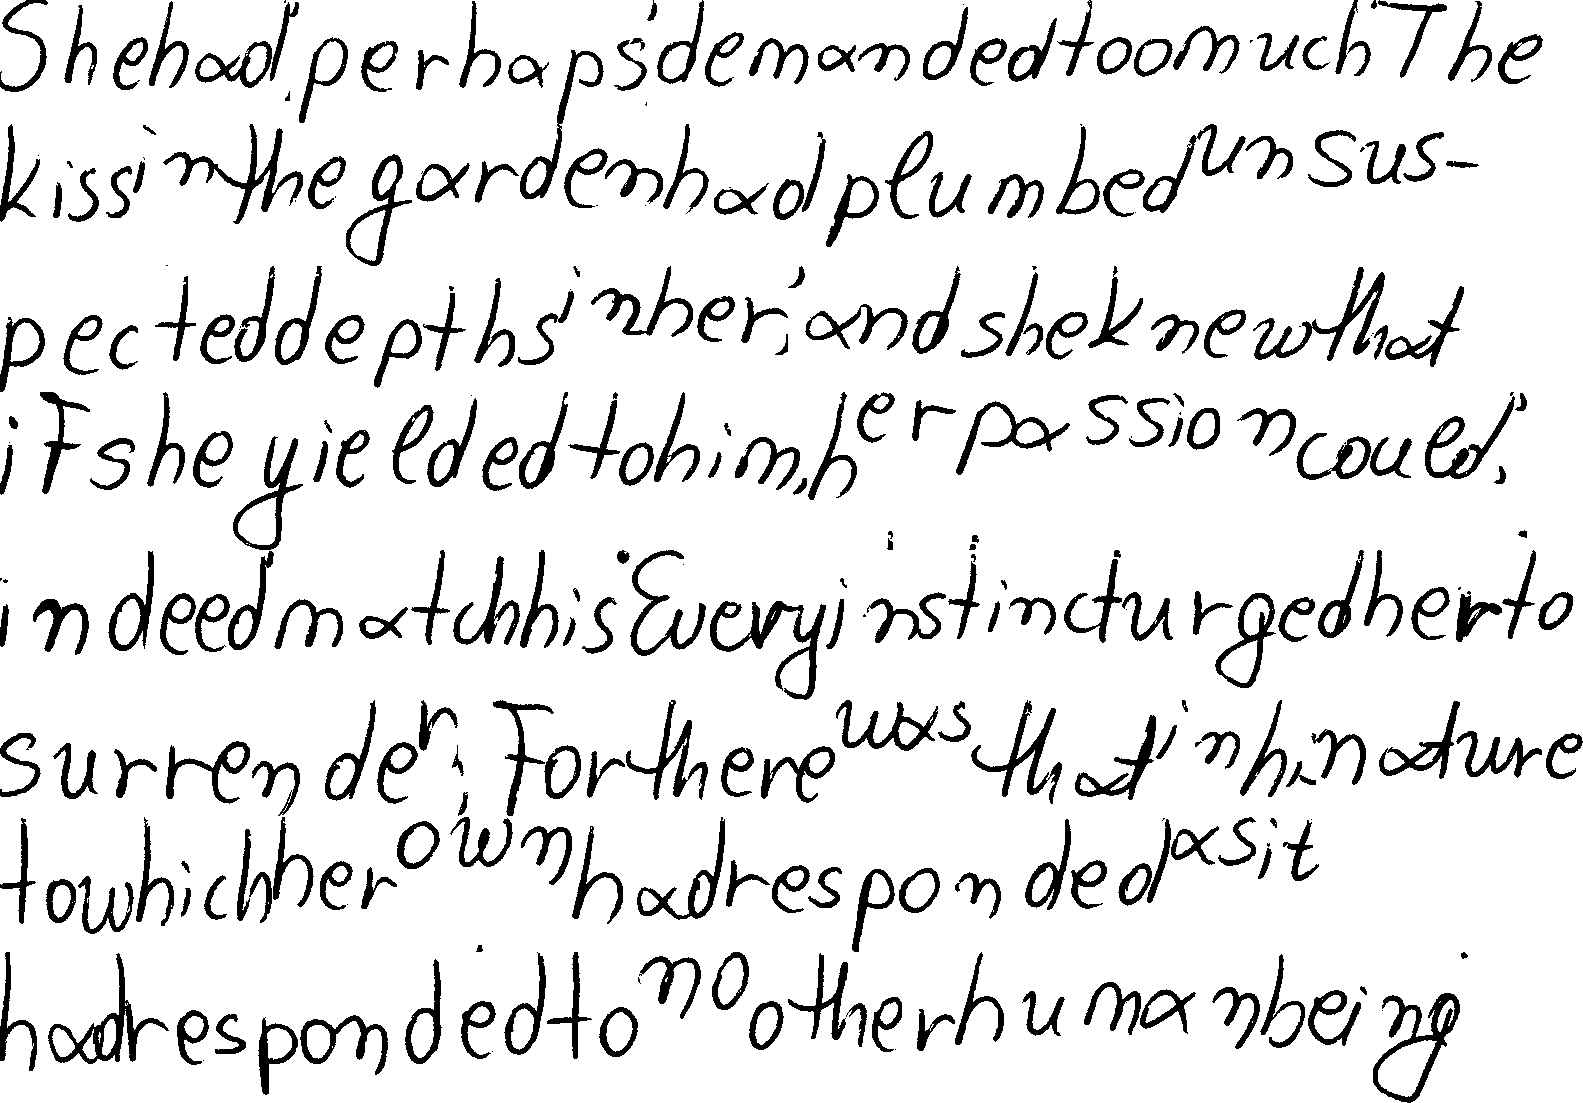 She had, perhaps, demanded too much. The
kiss in the garden had plumbed unsus-
pected depths in her, and she knew that
if she yielded to him, her passion could,
indeed match his. Every instinct urged her to
surrender, For there was that in his nature
to which her own had responded as it
had responded to no other human being